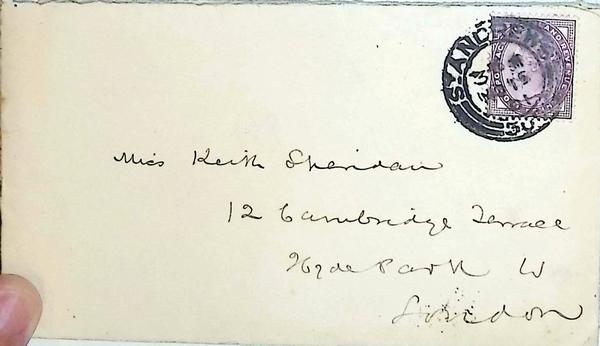 ST ANDREWS
Miss Keith Sheridan
12 Cambridge Terrace
Hyde Park W
London